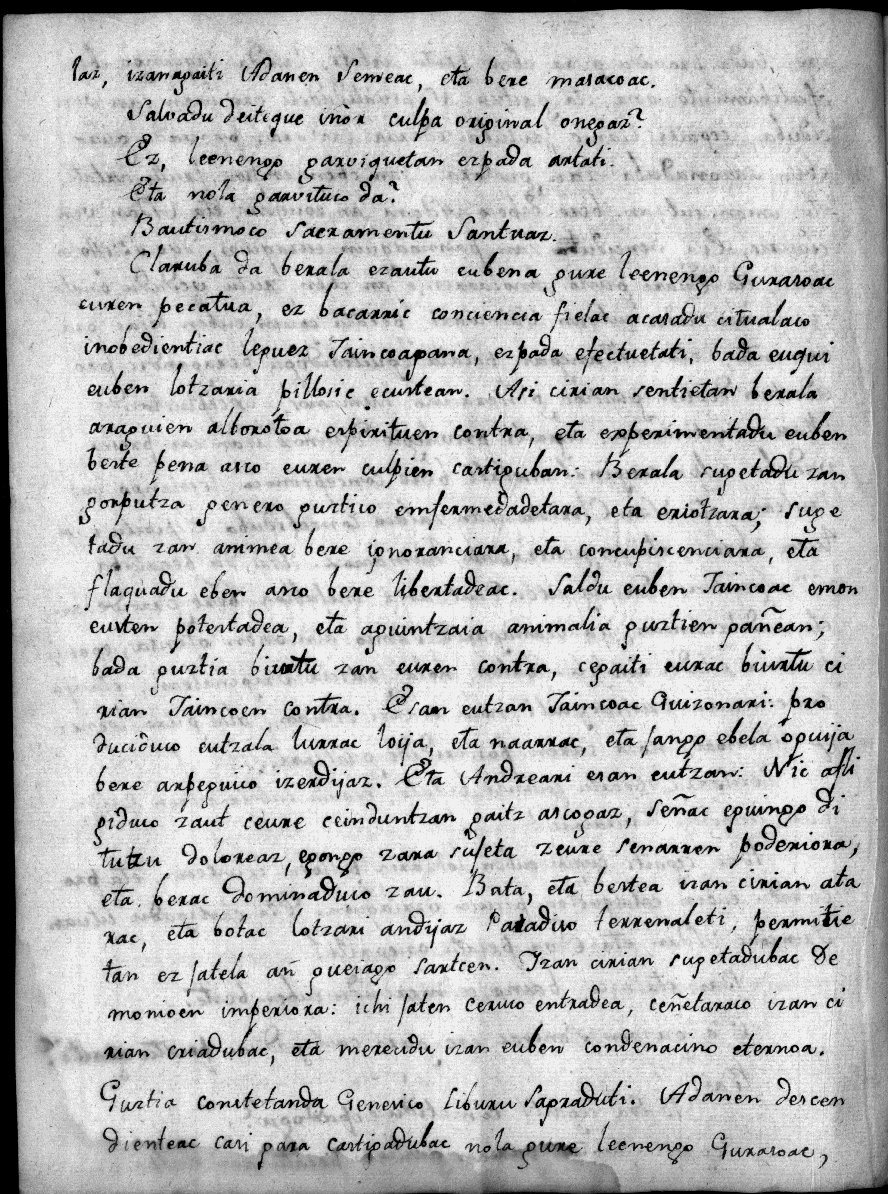 laz, izanagaiti Adanen Semeac, eta bere malacoac.
Salvadu deiteque inor culpa original onegaz?
Ez, leenengo garviquetan ezpada artati.
Eta nola garvituco da?
Bautismoco Sacramentu Santuaz.
Claruba da berala ezautu eubena gure leenengo Gurasoac
euren pecatua, ez bacarric conciencia fielac acusadu citualaco
inobedientiac lepuez Jaincoagana, ezpada efectuetati, bada eugui
euben lotzaria billosic ecustean. Asi cirian sentietan berala
araguien alborotoa espirituen contra, eta experimentadu euben
beste pena asco euren culpien castiguban: Berala sugetadu zan
gorputza genero guztico enfermedadetara, eta eriotzara; suge
tadu zan animea bere ignoranciara, eta concupiscenciara, eta
flaquadu eben asco bere libertadeac. Saldu euben Jaincoac emon
eusten potestadea, eta aguintzaia animalia guztien gañean;
bada guztia biurtu zan euren contra, cegaiti eurac biurtu ci
rian Jaincoen contra. Esan eutzan Jaincoac Guizonari: pro
ducicuco eutzala lurrac loija, eta naarrac, eta jango ebela oguija
bere arpeguico izerdijaz. Eta Andreari esan eutzan: Nic afli
giduco zaut ceure ceinduntzan gaitz ascogaz, señac eguingo di
tutzu doloreaz, egongo zara sujeta zeure senarren poderiora,
eta berac dominaduco zau. Bata, eta bestea izan cirian ata
rac, eta botac lotzari andijaz Paradiso terrenaleti, permitie
tan ez jatela añ gueiago sartcen. Izan cirian sugetadubac De
monioen imperiora: ichi jaten ceruco entradea, ceñetaraco izan ci
rian criadubac, eta merecidu izan euben condenacino eternoa.
Guztia constetanda Genesico Liburu Sagraduti. Adanen descen
dienteac casi para castigadubac nola gure leenengo Gurasoac,